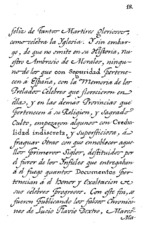 18.
sulta de tantos Martires gloriosos,
como celebra la Iglesia. Y sin embar-
go, de que no omite en su Historia, Nu-
estro Ambrosio de Morales, ningu-
no de los que con seguridad pertene-
cen à España, con la Memoria de los
Prelados Celebres que florecieron en
ella, y en las demas Provincias que
pertenecen à su Religion, y Sagrado
Culto, empezaron algunos con Credu-
lidad indiscreta, y supersticiosa, à
fraguar otras con que ennoblecer aquellos
primeros Siglos, destituidos por
el furor de los Infieles que entregaban
à el fuego quantos Documentos per-
tenecian à el Honor y Exaltacion de
sus celebres progresos. Con este fin, se
fueron publicando los falsos Chronico-
nes de Lucio Flavio Dextro, Marco
Ma-